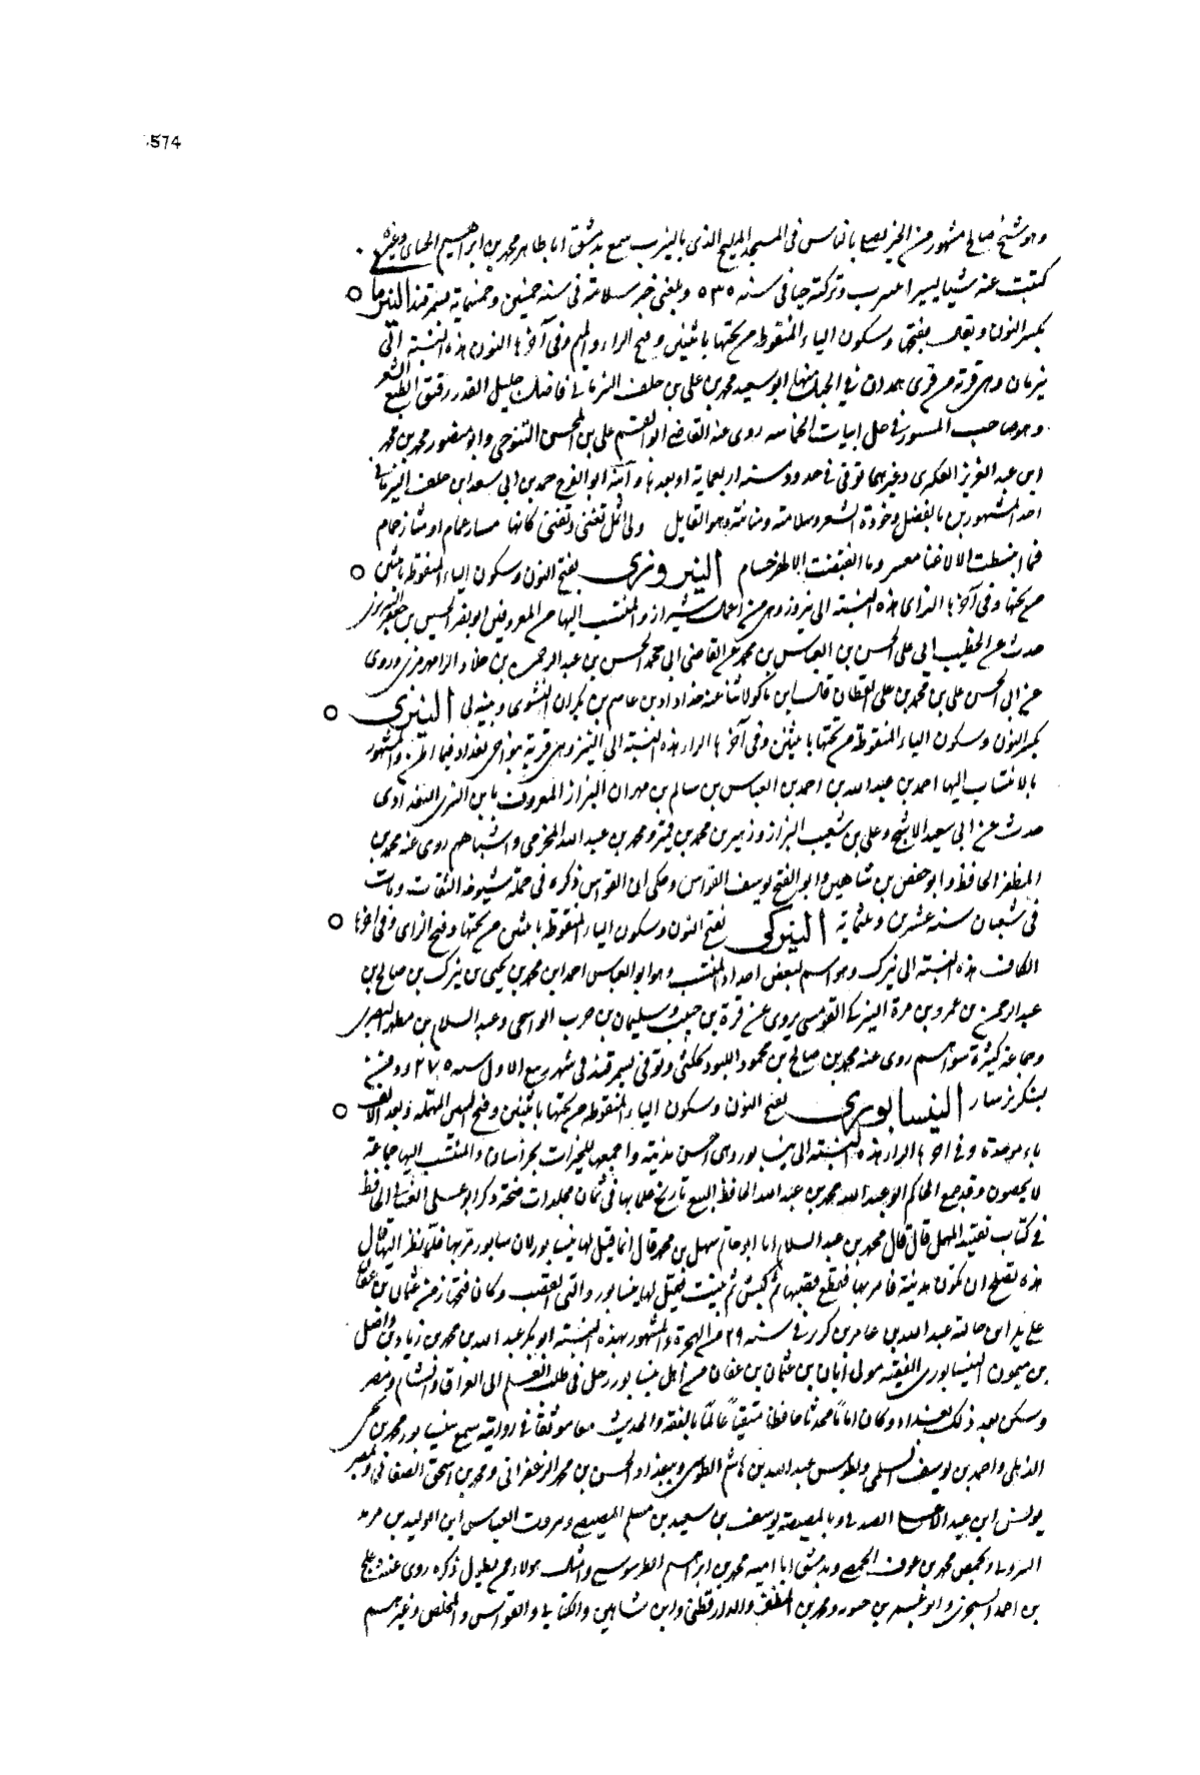 574
وهو شيخ صالح مشهور من الخير يصلي بالناس في المسجد المليح الذي بالنيرب سمع بدمشق ابا طاهر محمد بن ابراهيم الحنائي وغيره
كتبت عنه شيئا يسيرا بنيرب وتركته حيا في سنة ٥٣٥ وبلغني خبر سلامته في سنة خمسين وخمسماية بسمرقند النيرما
بكسر النون ويقال بفتحها وسكون الياء المنقوطة من تحتها باثنين وفتح الراء والميم وفي آخرها النون هذه النسبة الى
نيرمان وهي قرية من قرى همدان في الجبل منها ابو سعيد محمد بن علي بن خلف النرماني فاضل جليل القدر رقيق الطبع الشعر
وهو صاحب المنثور في حل ابيات الحماسه روى عنه القاضي ابو القسم علي بن المحسن التنوخي وابو منصور محمد بن محمد
ابن عبد العزيز العكبري وغيرهما توفي في حدود سنة اربعماية او بعدها وابنه ابو الفرج حمد بن ابي سعد ابن خلف النيرماني
احد المشهورين بالفضل وجودة الشعر وسلامته ومتانته وهو القايل
فما انبسطت الا لاغنا معسر وما انقبضت الا لظهر حسام النيروزي بفتح النون وسكون الياء المنقوطة باثنين
من تحتها وفي آخرها الزاى هذه النسبة الى نيروز وهي من اعمال شيراز والمنتسب اليها من المعروفين ابو نصر الحسين بن جعفر
حدث عن الخطيب ابي علي الحسن بن العباس بن محمد عن القاضي ابي محمد الحسن بن عبد الرحمن بن خلاد الرامهرمزي وروى
عن ابي الحسن علي بن محمد بن علي القطان قال ابن ماكولا ثنا عنه خداداد بن عاصم بن بكران النشوي وبينه لي النيري
بكسر النون وسكون الياء المنقوطة من تحتها باثنين وفي آخرها الراء هذه النسبة الى النير وهي قرية بنواحي بغداد فيما اظن والمشهور
بالانتساب اليها احمد بن عبد الله بن احمد بن العباس بن سالم بن مهران البزاز المعروف بابن النيري البغدادي
حدث عن ابي سعيد الاشج وعلي بن شعيب البزاز وزهير بن محمد بن قمير ومحمد بن عبد الله المخرمي واشباههم روى عنه محمد بن
المظفر الحافظ وابو حفص بن شاهين وابو الفتح يوسف القواس وحكى ابن القواس ذكره في جملة شيوخه الثقات ومات
في شعبان سنة عشرين وثلثماية النيزكي بفتح النون وسكون الياء المنقوطة باثنين من تحتها وفتح الزاى وفي اخرها
الكاف هذه النسبة الى نيزك وهو اسم لبعض اجداد المنتسب وهو ابو العباس احمد ابن محمد بن يحيى بن نيزك بن صالح بن
عبد الرحمن بن عمرو بن مرة النيزكي القومسي يروي عن قرة بن حبيب وسليمان بن حرب الواشحي وعبد السلام بن مطهر البصري
وجماعة كثيرة سواهم روى عنه محمد بن صالح بن محمود اللبود كلكثي وتوفي بسمرقند في شهر ربيع الاول سنة ٢٧٥ ودفن
النيسابوري بفتح النون وسكون الياء المنقوطة من تحتها باثنين وفتح السين المهملة وبعد الالف
باء موحدة وفي اخرها الراء هذه النسبة الى نيسابور وهي احسن مدينة واجمعها للخيرات بخراسان والمنتسب اليها جماعة
لا يحصون وقد جمع الحاكم ابو عبد الله محمد بن عبد الله الحافظ البيع تاريخ علمايها في ثمان مجلدات ضخمة وذكر ابو علي الغساني الحافظ
في كتاب تقييد المهمل قال قال محمد بن عبد السلام انا ابو حاتم سهل بن محمد قال انما قيل لها نيسابور لان سابور مر بها فلما نظر اليها قال
هذه تصلح ان تكون مدينة فامر بها فقطع قصبها ثم كبس ثم بنيت فقيل لها نيسابور والنى القصب وكان فتحها زمن عثمان بن عفان
على يد ابن خالته عبد الله بن عامر بن كريز في سنة ٢٩ من الهجرة والمشهور بهذه النسبة ابو بكر عبد الله بن محمد بن زياد بن واصل
بن ميمون النيسابوري الفقيه مولى ابان بن عثمان بن عفان من اهل نيسابور رحل في طلب العلم الى العراق والشام ومصر
وسكن بعد ذلك بغداد وكان اماما محدثا حافظا متقنا عالما بالفقه والحديث معا موثقا في روايته سمع بنيسابور محمد بن يحيى
الذهلي واحمد بن يوسف السلمي وبطوس عبد الله بن هاشم الطوسي وببغداد الحسن بن محمد الزعفراني ومحمد بن اسحق الصغاني وبمصر
يونس ابن عبد الاعلى الصدفي وبالمصيصة يوسف بن سعيد بن مسلم المصيصي وبيروت العباس ابن الوليد بن مزيد
البيروتي وبحمص محمد بن عوف الحمصي وبدمشق ابا امية محمد بن ابراهيم الطرسوسي وامثال هولاء ممن يطول ذكره روى عنه دعلج
بن احمد السجزي وابو عمر بن حيويه ومحمد بن المظفر والدارقطني وابن شاهين والكتاني والقواس والمخلص وغيرهم